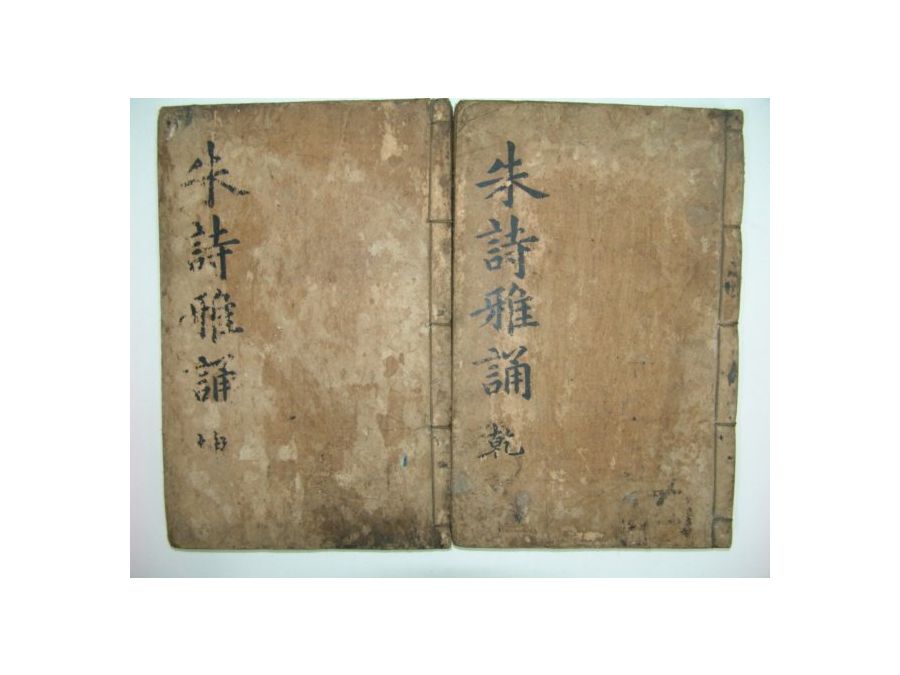 朱詩雅誦 乾
朱詩雅誦 坤